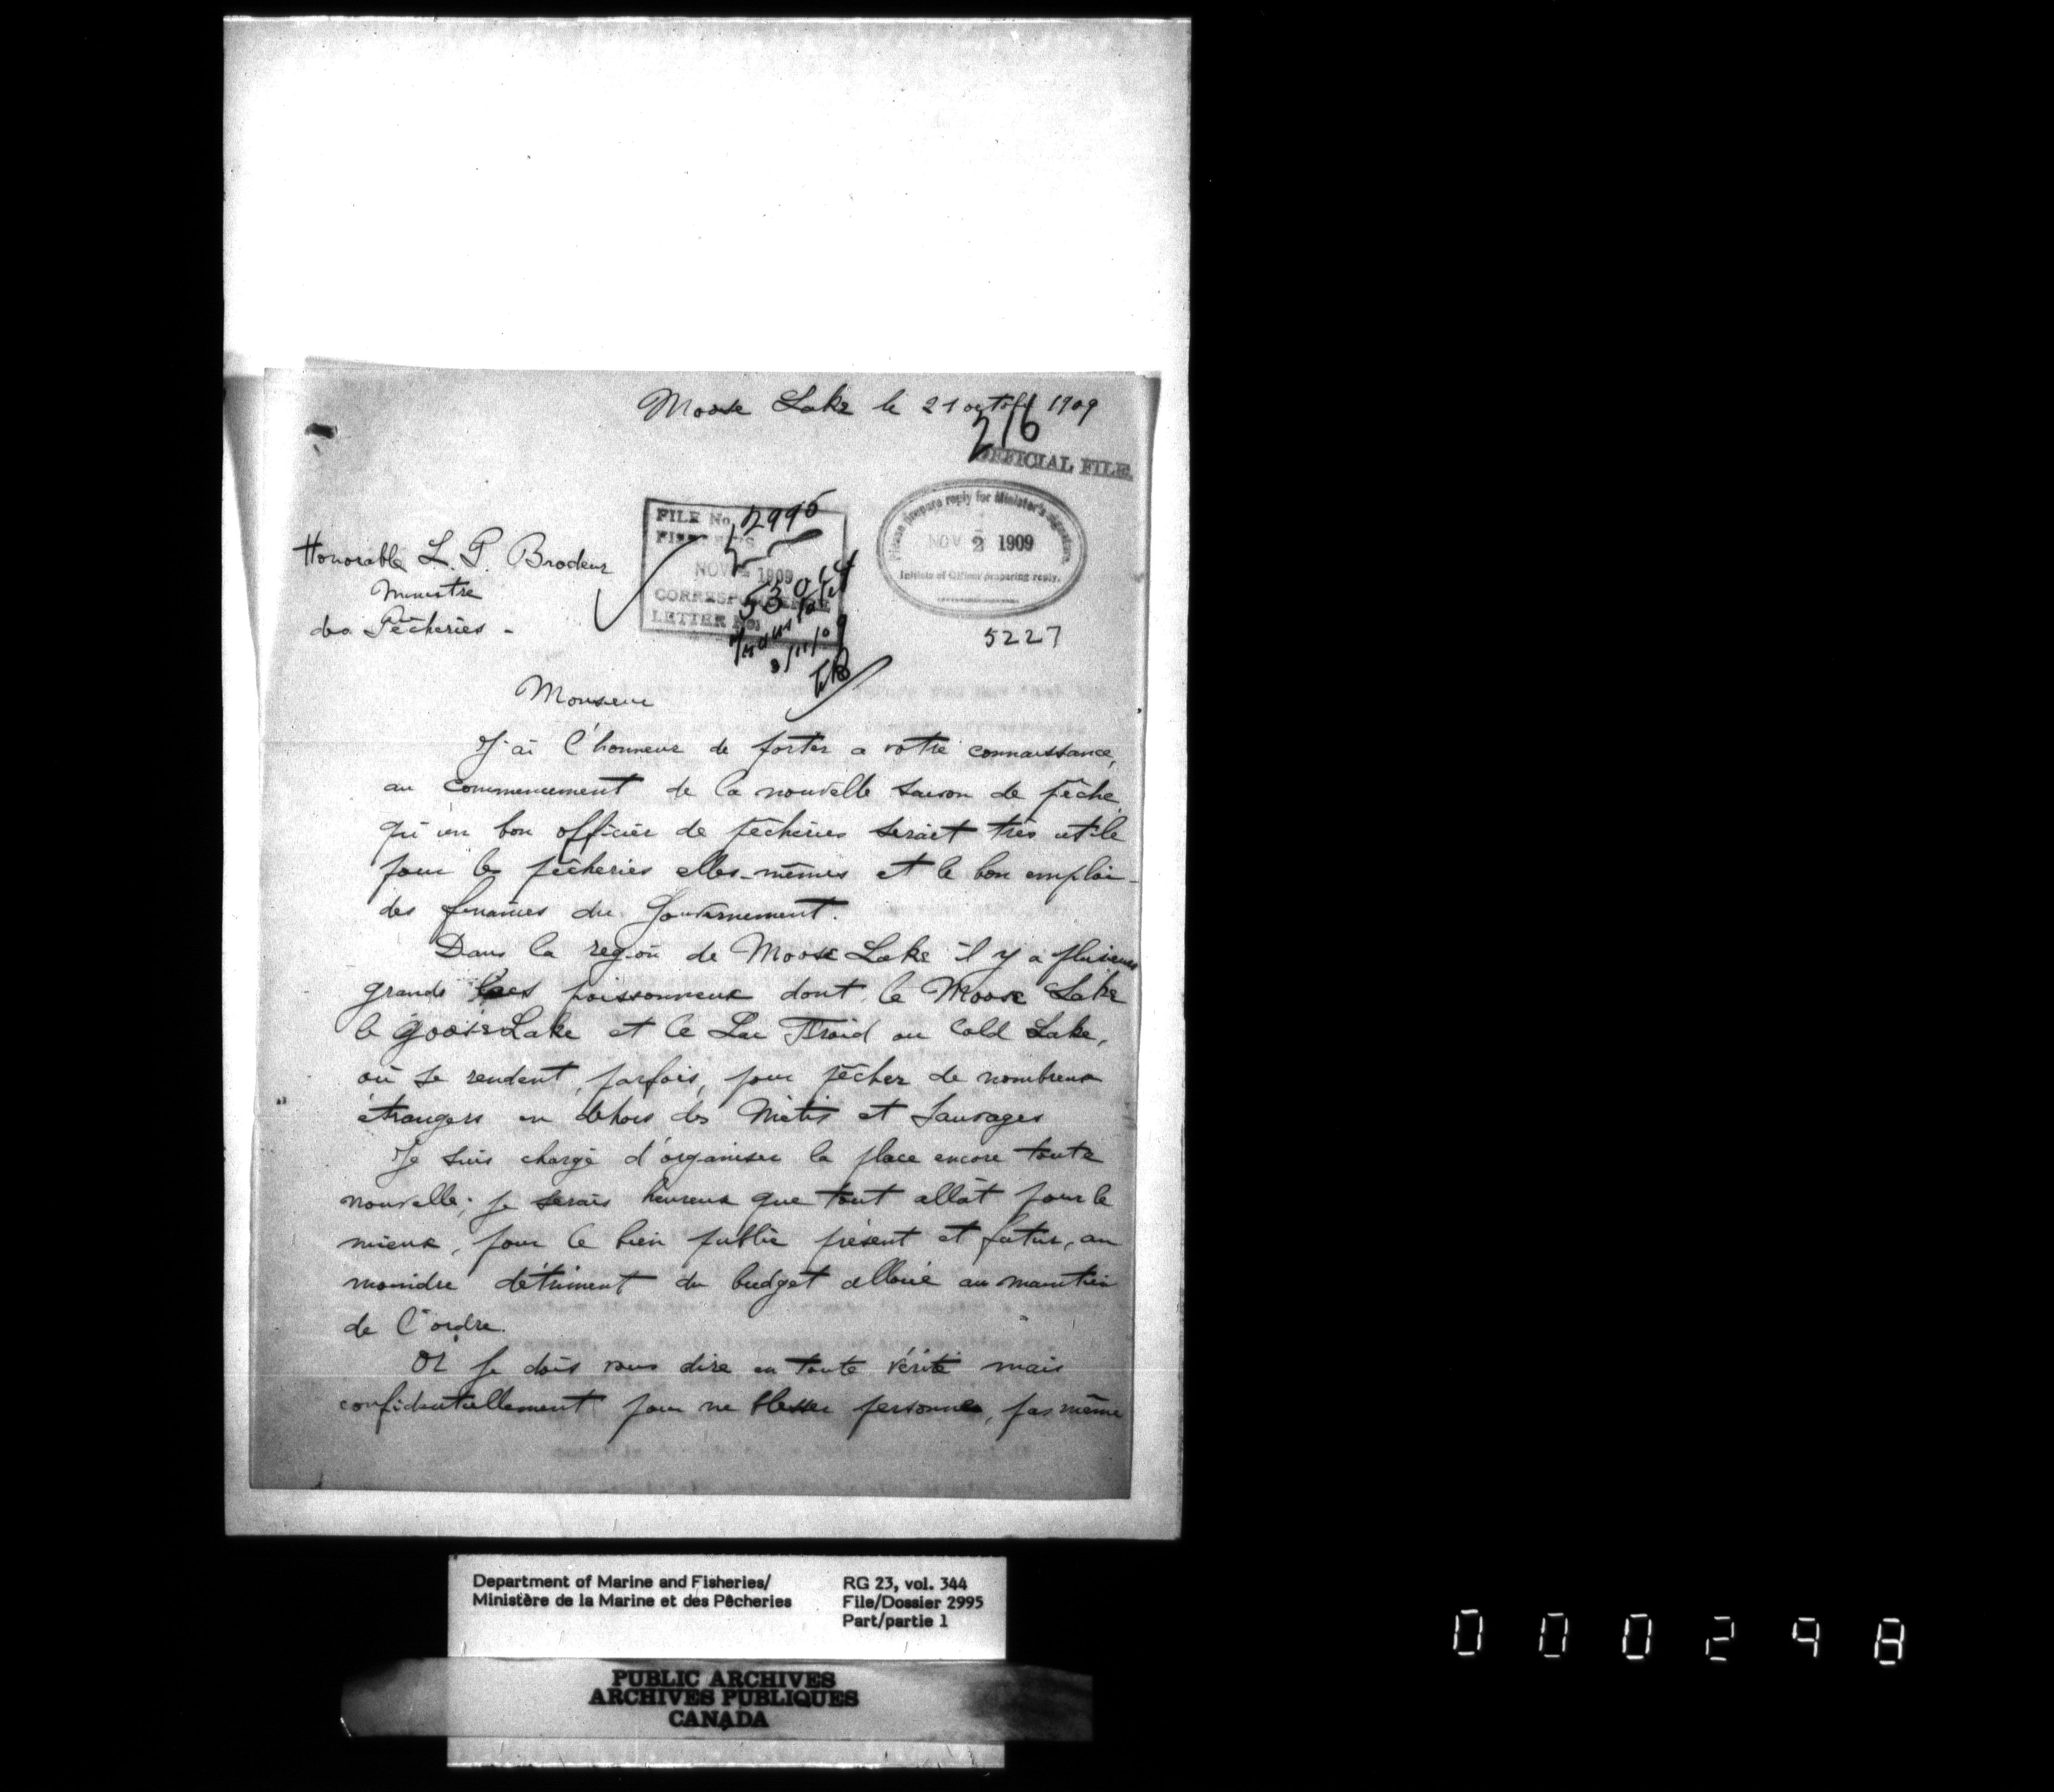 Moose Lake le 21 octobre 1909
216
OFFICIAL FILE.
FILE No. 2995
FISHERIES
NOV 2 1909
CORRESPONDENCE
LETTER No.
3/11/09
Please prepare reply for Minister's signature.
NOV 2 1909
Initials of Officer preparing reply.
5227
Honorable L. P. Brodeur
Ministre
des Pêcheries -
Monsieur
J'ai l'honneur de porter a votre connaissance,
au commencement de la nouvelle saison de pêche,
qu'un bon officier de pêcheries serait très utile
pour les pêcheries elles-mêmes et le bon emploi
des finances du Gouvernement.
Dans la région de Moose Lake il y a plusieurs
grands lacs poissonneux dont le Moose Lake
le Goose Lake et le Lac Froid ou Cold Lake,
où se rendent, parfois, pour pêcher de nombreux
étrangers en dehors des Métis et Sauvages
Je suis chargé d'organiser la place encore toute
nouvelle; je serais heureux que tout allât pour le
mieux, pour le bien public présent et futur, au
moindre détriment du budget alloué au maintien
de l'ordre.
Or je dois vous dire en toute vérité mais
confidentiellement pour ne blesser personne, pas même
Department of Marine and Fisheries/
Ministère de la Marine et des Pêcheries
RG 23, vol. 344
File/Dossier 2995
Part/partie 1
PUBLIC ARCHIVES
ARCHIVES PUBLIQUES
CANADA
000298